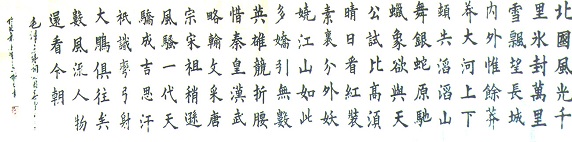 北國風光千
里冰封萬里
雪飄望長城
內外惟餘莽
莽大河上下
頓失滔滔山
舞銀蛇原馳
蠟象欲與天
公試比高須
晴日看紅裝
素裹分外妖
嬈江山如此
多嬌引無數
英雄競折腰
惜秦皇漢武
略輸文采唐
宗宋祖稍遜
風騷一代天
驕成吉思汗
祇識彎弓射
大鵰俱往矣
數風流人物
還看今朝